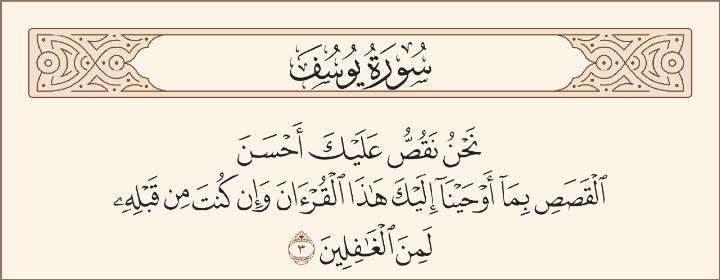 سُورَةُ يُوسُفَ
نَحْنُ نَقُصُّ عَلَيْكَ أَحْسَنَ
ٱلْقَصَصِ بِمَآ أَوْحَيْنَآ إِلَيْكَ هَٰذَا ٱلْقُرْءَانَ وَإِن كُنتَ مِن قَبْلِهِۦ
لَمِنَ ٱلْغَٰفِلِينَ ٣